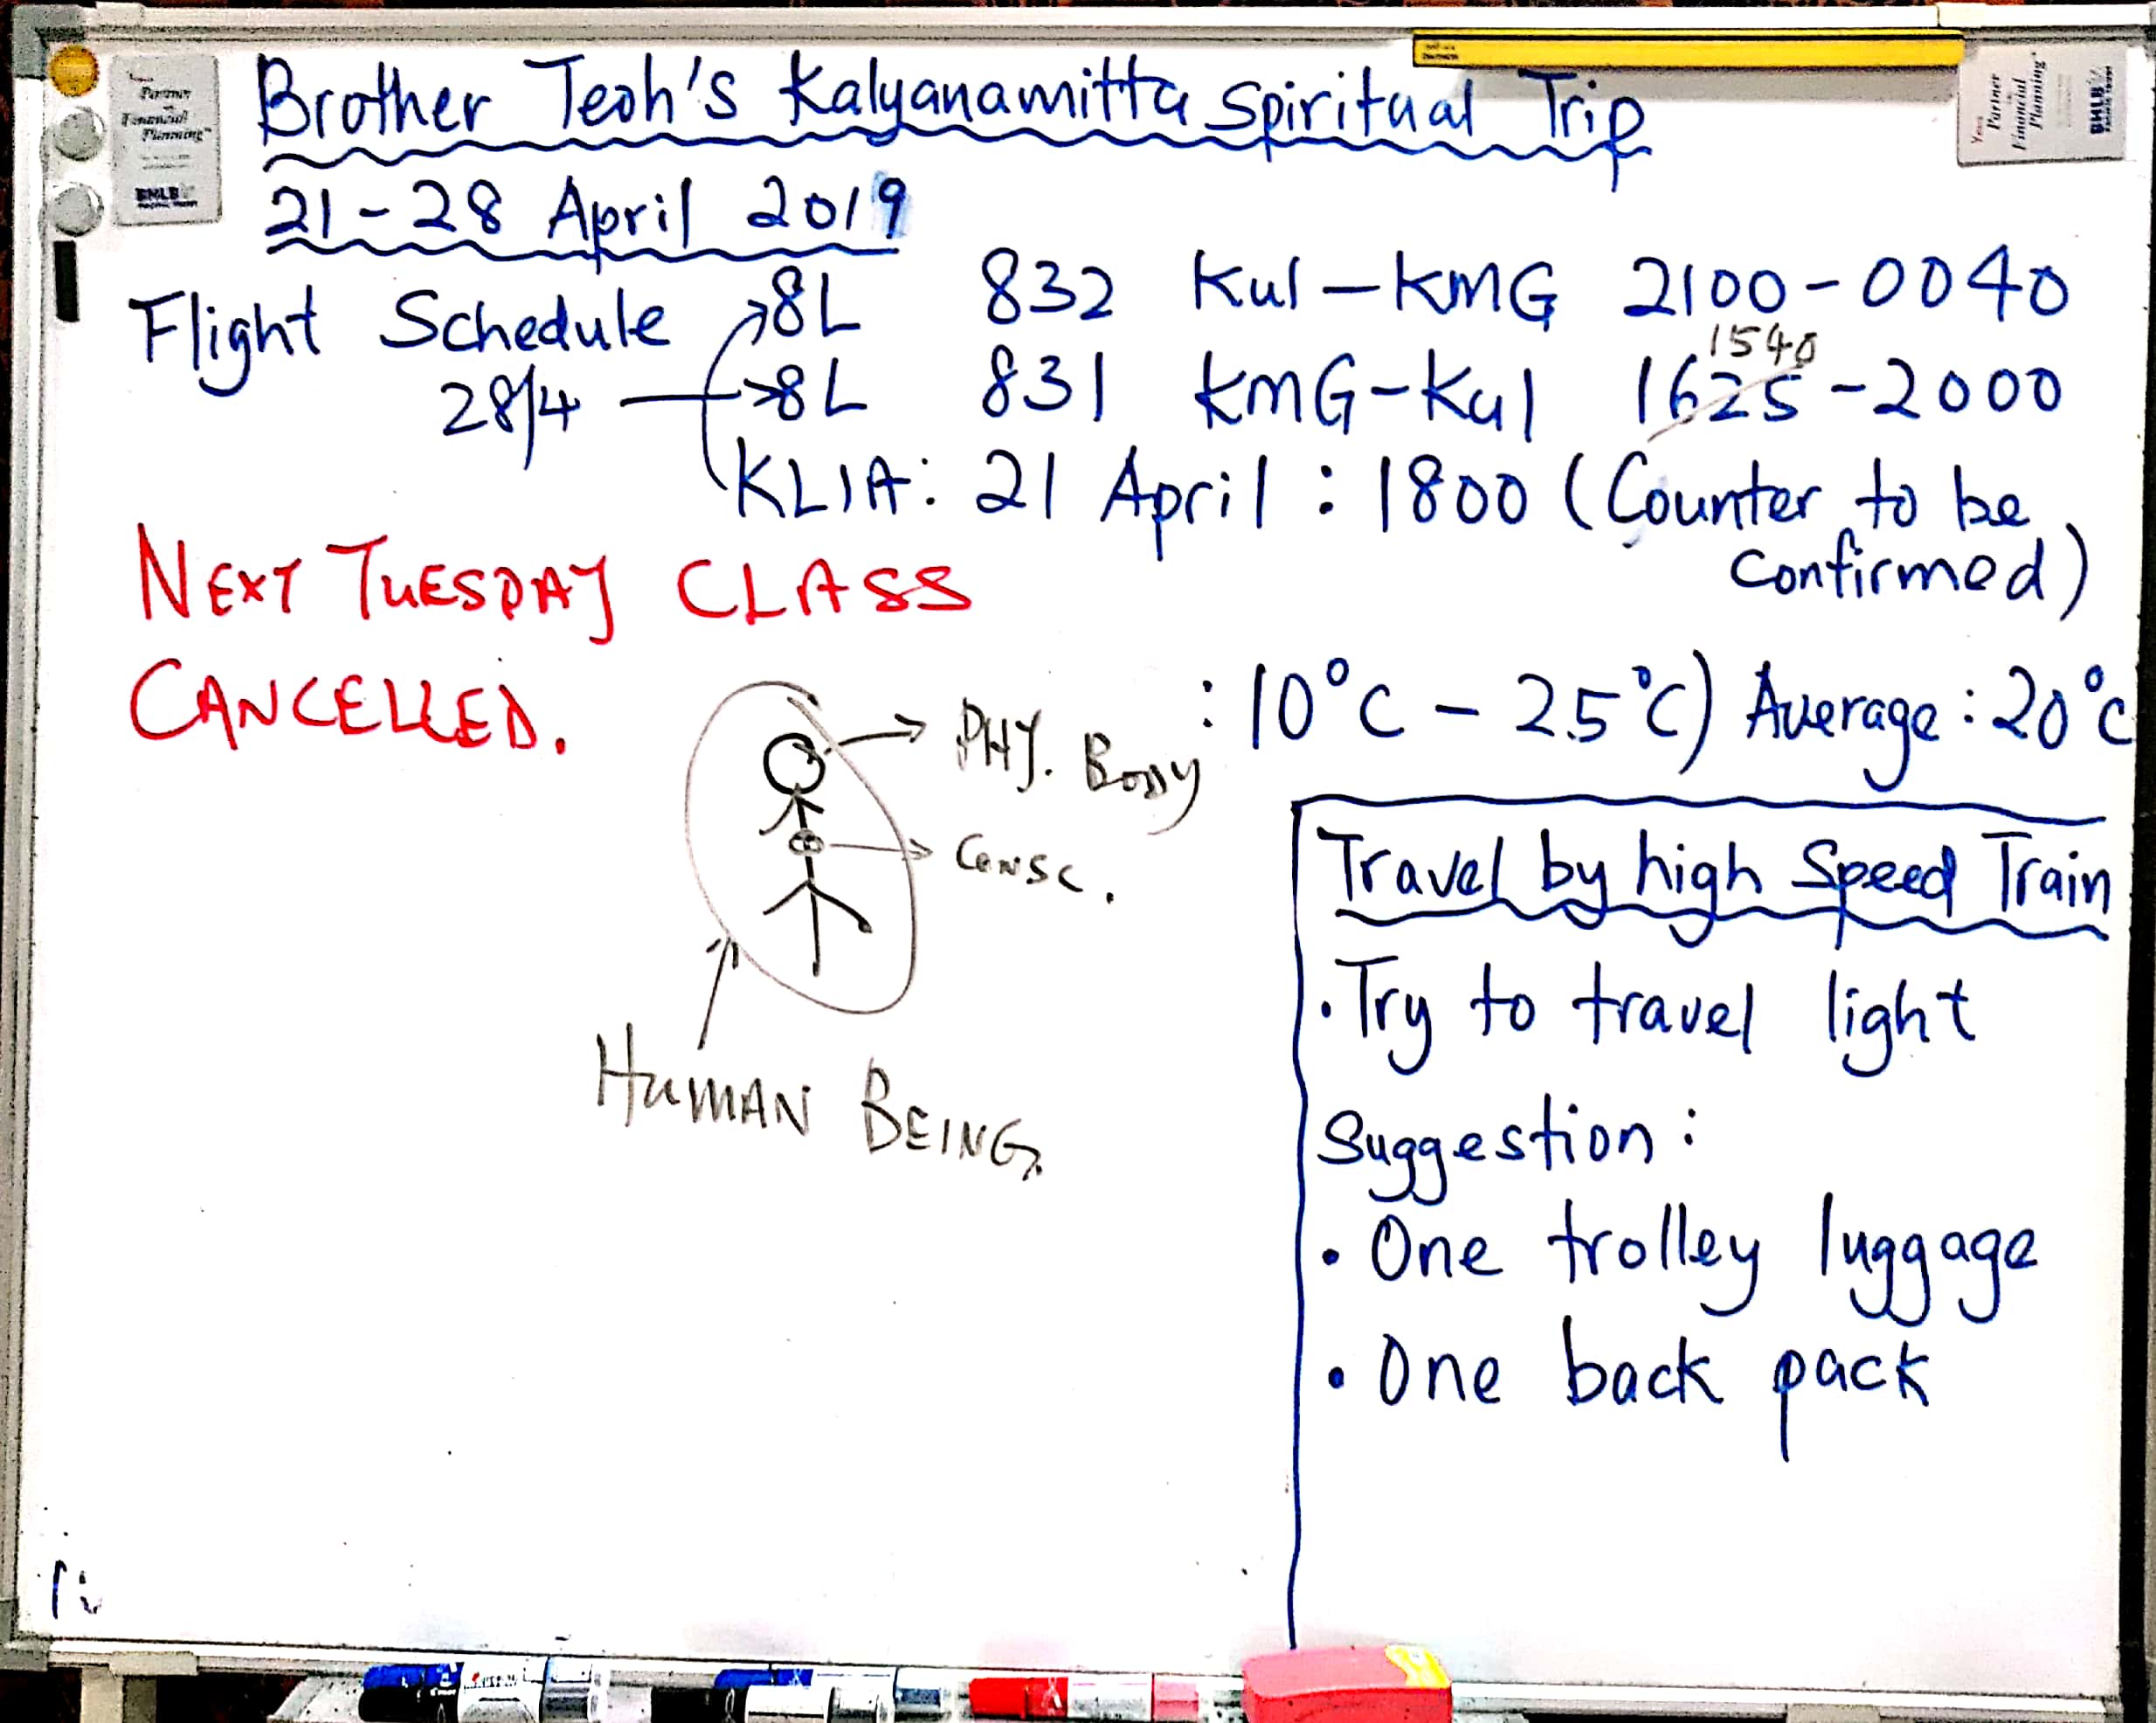 Brother Teoh's Kalyanamitta Spiritual Trip
21-28 April 2019
Flight Schedule 8L 832 Kul-KMG 2100-0040
28/4 8L 831 KMG-Kul 1625-2000
1540
KLIA: 21 April : 1800 (Counter to be
confirmed)
NEXT TUESDAY CLASS
CANCELLED.
: 10°C - 25°C) Average: 20°C
PHY. BODY
CONSC.
HUMAN BEING.
Travel by high Speed Train
• Try to travel light
Suggestion:
• One trolley luggage
• One back pack
Your
Partner
in
Financial
Planning
BHLB
Your
Partner
Financial
Planning
BHLB